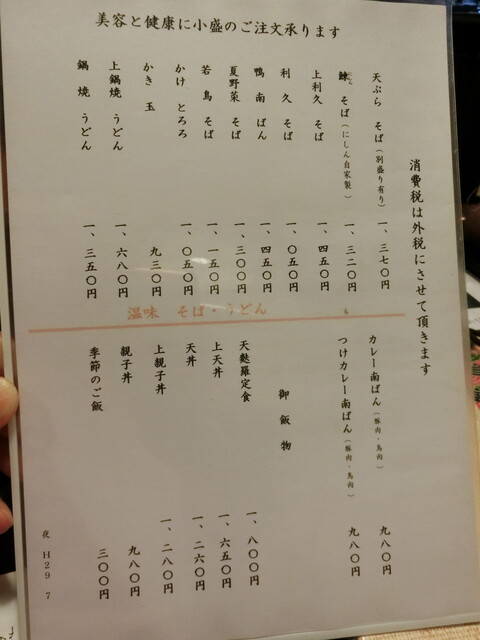 美容と健康に小盛のご注文承ります
消費税は外税にさせて頂きます
天ぷら そば（別盛り有り） 一、三七〇円
鰊 そば（にしん自家製） 一、三二〇円
上利久 そば 一、四五〇円
利久 そば 一、〇五〇円
鴨南ばん 一、四五〇円
夏野菜 そば 一、三〇〇円
若鳥 そば 一、一五〇円
かけ とろろ 一、〇五〇円
かき玉 九三〇円
上鍋焼 うどん 一、六八〇円
鍋焼 うどん 一、三五〇円
温味 そば・うどん
カレー南ばん（豚肉・鳥肉） 九八〇円
つけカレー南ばん（豚肉・鳥肉） 九八〇円
御飯物
天麩羅定食 一、八〇〇円
上天丼 一、六五〇円
天丼 一、二六〇円
上親子丼 一、二八〇円
親子丼 九八〇円
季節のご飯 三〇〇円
夜 H29 7